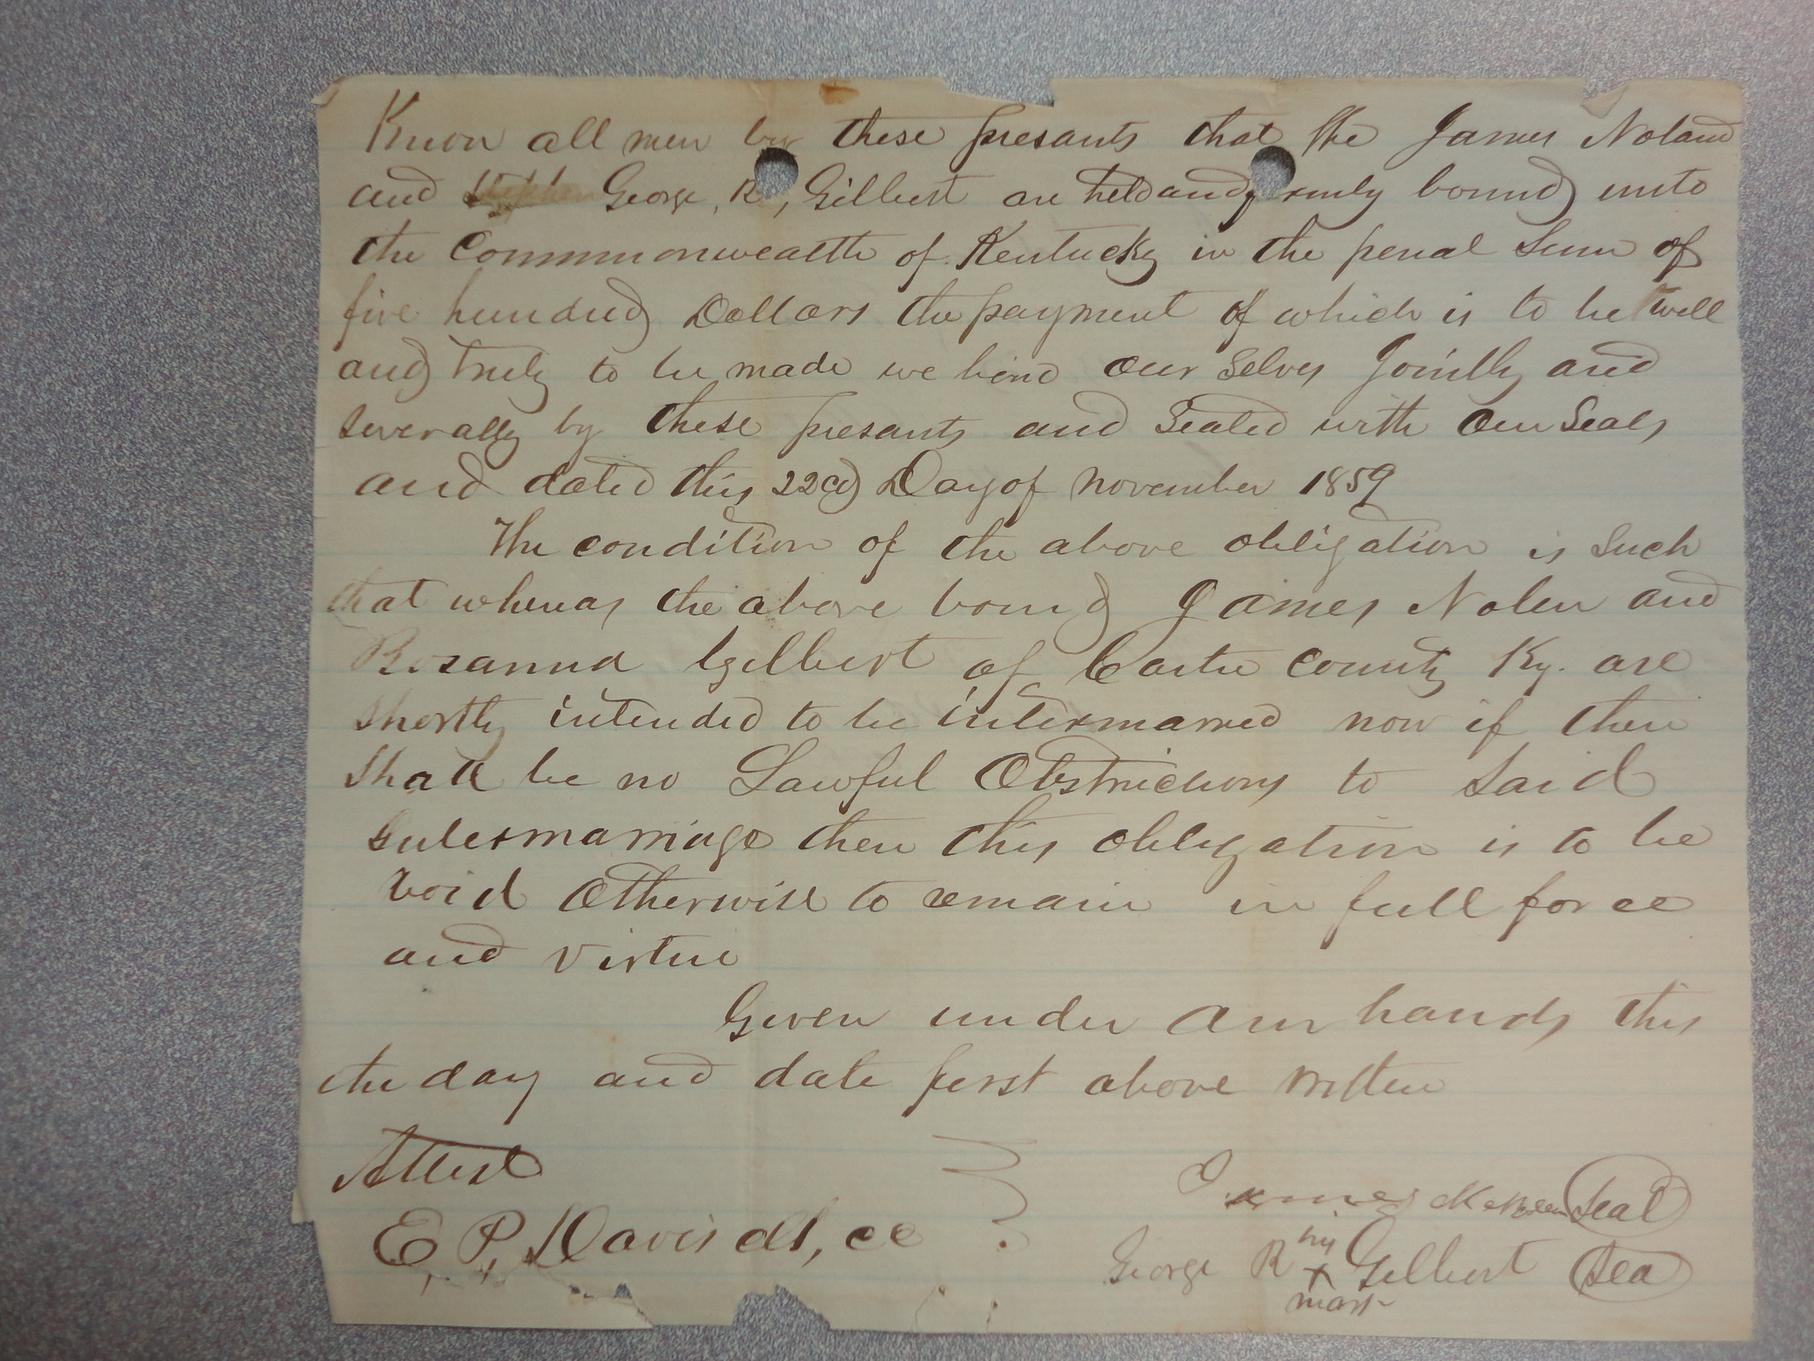 Know all men by these presants that the James Noland
and George, R, Gilbert are held and firmly bound unto
the Commonwealth of Kentucky in the penal Sum of
five hundred Dollars the payment of which is to be well
and truly to be made we bind our Selves Jointly and
Severally by these presants and Sealed with our Seals
and dated this 22d Day of November 1859
The condition of the above obligation is Such
that whereas the above bound James Nolen and
Rosanna Gilbert of Carter County Ky. are
Shortly intended to be intermarred now if there
Shall be no Lawful Obstructions to Said
Intermarriage then this obligation is to be
Void Otherwise to remain in full force
and virtue
Given under our hands this
the day and date first above written
Attest
E. P. Davis dk, cc
James Seal
his
George R x Gilbert Sea
mark